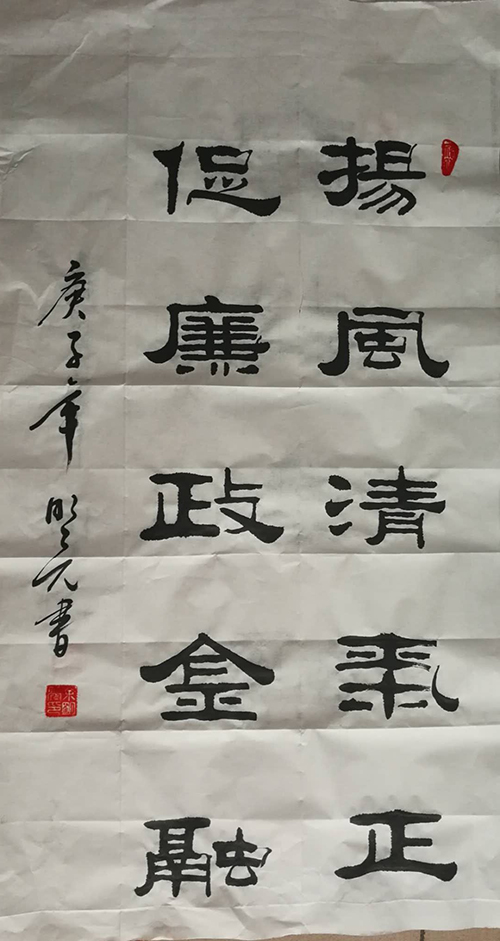 揚風清氣正
促廉政金融
庚子年 明元書